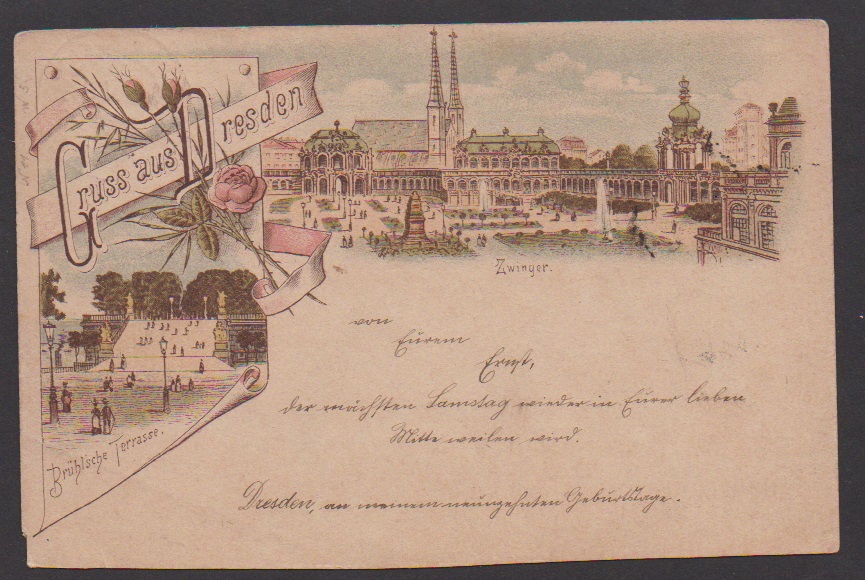 Gruss aus Dresden
Zwinger.
Brühl'sche Terrasse.
von
Eurem
Ernst,
der nächsten Samstag wieder in Eurer lieben
Mitte weilen wird.
Dresden, an meinem neunzehnten Geburtstage.